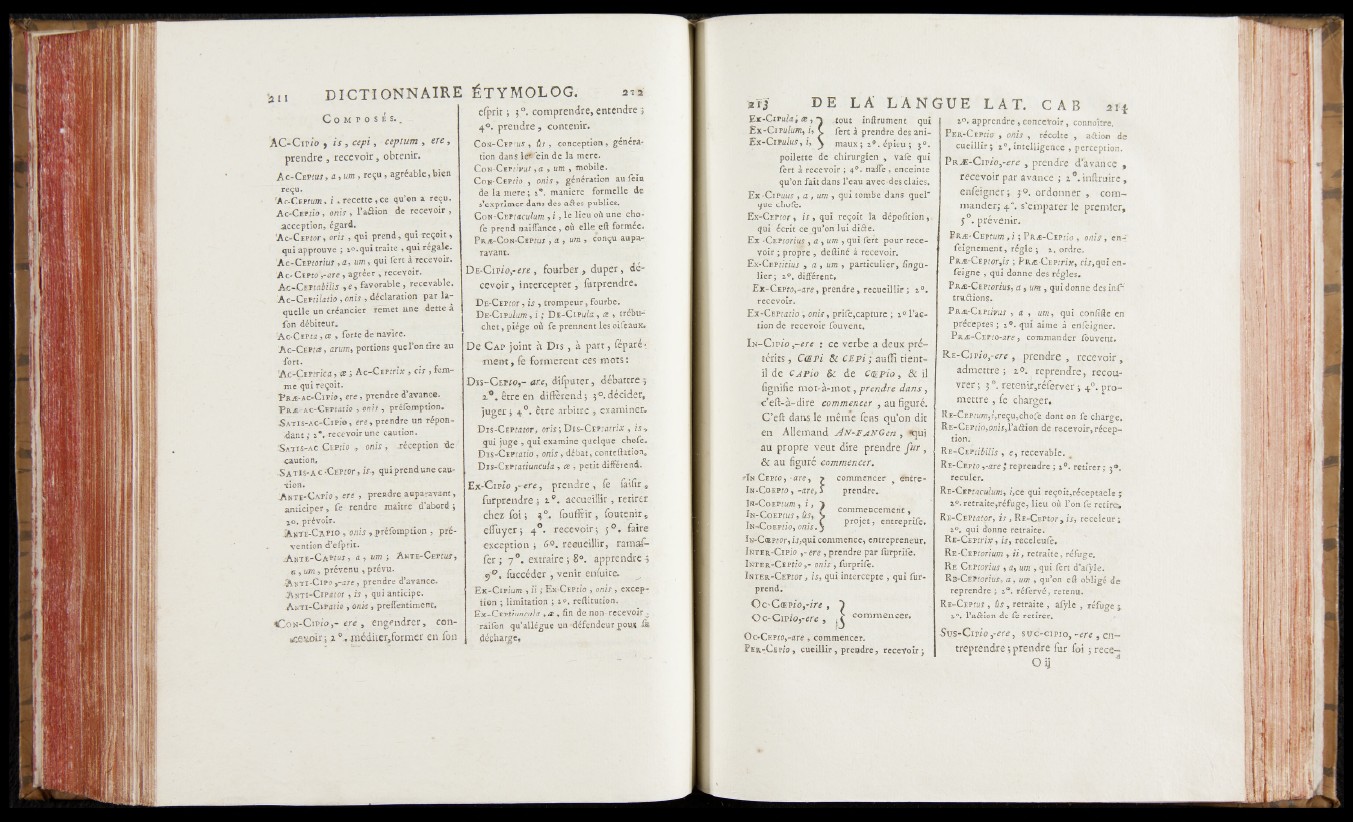 211 DICTIONNAIRE ÉTYMOLOG. 212
COMPOSÉS.
AC-CIPio, is, cepi, ceptum, ere,
prendre, recevoir, obtenir.
AC-CEPtus, a, um, reçu, agréable, bien
reçu.
AC-CEPtum, i, recette, ce qu'on a reçu.
AC-CEPtio, onis, l'action de recevoir,
acception, égard.
AC-CEPtor, oris, qui prend, qui reçoit,
qui approuve; 2°. qui traite, qui régale.
AC-CEPtorius, a, um, qui sert à recevoir.
AC-CEPto,-are, agréer, recevoir.
AC-CEPtabilis, e, favorable, recevable.
AC-CEPtilatio, onis, déclaration par la-
quelle un créancier remet une dette à
son débiteur.
AC-CEPta, æ, sorte de navire.
AC-CEPtæ, arum, portions que l'on tire au
sort.
AC-CEPtrica, æ; AC-CEPtrix, cis, fem-
me qui reçoit.
PRÆ-AC-CIPio, ere, prendre d'avance.
PRÆ-AC-CEPtatio, onis, présomption.
SATIS-AC-CIPio, ere, prendre un répon-
dant; 2°. recevoir une caution.
SATIS-AC CEPtio, onis, réception de
caution.
SATIS-AC-CEPtor, is, qui prend une cau-
tion.
ANTE-CAPio, ere, prendre auparavant,
anticiper, se rendre maître d'abord;
2°. prévoir.
ANTE-CAPIO, onis, présomption, pré-
vention d'esprit.
ANTE-CAPtus, a, um; ANTE-CEPtus,
a, um, prévenu, prévu.
ANTI-CIPo,-are, prendre d'avance.
ANTI-CIPator, is, qui anticipe.
ANTI-CIPatio, onis, pressentiment.
CON-CIPio,-ere, engendrer, con-
cevoir; 2°. méditer, former en son
esprit; 3°. comprendre, entendre;
4°. prendre, contenir.
CON-CEPtus, ûs, conception, généra-
tion dans le sein de la mere.
CON-CEPtivus, a, um, mobile.
CON-CEPtio, onis, génération au sein
de la mere; 2°. maniere formelle de
s'exprimer dans des actes publics.
CON-CEPtaculum, i, le lieu où une cho-
se prend naissance, où elle est formée.
PRÆ-CON-CEPtus, a, um, conçu aupa-
ravant.
DE-CIPio,-ere, fourber, duper, dé-
cevoir, intercepter, surprendre.
DE-CEPtor, is, trompeur, fourbe.
DE-CIPulum, i; DE-CIPula, æ, trébu-
chet, piége où se prennent les oiseaux.
De CAP joint à DIS, à part, séparé-
ment, se formerent ces mots:
DIS-CEPto,-are, disputer, débattre;
2°. être en différend; 3°. décider,
juger; 4°. être arbitre, examiner.
DIS-CEPtator, oris; DIS-CEPtatrix, is,
qui juge, qui examine quelque chose.
DIS-CEPtatio, onis, débat, contestation.
DIS-CEPtatiuncula, æ, petit différend.
EX-CIPio,-ere, prendre, se saisir,
surprendre; 2°. accueillir, retirer
chez soi; 3°. souffrir, soutenir,
essuyer; 4°. recevoir; 5°. faire
exception; 6°. recueillir, ramas-
ser; 7°. extraire; 8°. apprendre;
9°. succéder, venir ensuite.
EX-CIPium, ii; EX-CEPtio, onis, excep-
tion; limitation; 2°. restitution.
EX-CEPtiuncula, æ, fin de non-recevoir;
raison qu'allégue un défendeur pour sa
décharge.
213 DE LA LANGUE LAT. CAB 214
EX-CIPula, æ, } tout instrument qui
EX-CIPulum, i, } sert à prendre des ani-
EX-CIPulus, i, } maux; 2°. épieu; 3°.
poilette de chirurgien, vase qui
sert à recevoir; 4°. nasse, enceinte
qu'on fait dans l'eau avec des claies.
EX-CIPuus, a, um, qui tombe dans quel-
que chose.
EX-CEPtor, is, qui reçoit la déposition,
qui écrit ce qu'on lui dicte.
EX-CEPtorius, a, um, qui sert pour rece-
voir; propre, destiné à recevoir.
EX-CEPtitius, a, um, particulier, singu-
lier; 2°. différent.
EX-CEPto,-are, prendre, recueillir; 2°.
recevoir.
EX-CEPtatio, onis, prise, capture; 2° l'ac-
tion de recevoir souvent.
IN-CIPio,-ere: ce verbe a deux pré-
térits, CŒPi & CEPi; aussi tient-
il de CAPio & de CŒPio, & il
signifie mot-à-mot, prendre dans,
c'est-à-dire commencer, au figuré.
C'est dans le même sens qu'on dit
en Allemand AN-FANGen, qui
au propre veut dire prendre sur,
& au figuré commencer.
IN CEPto,-are, } commencer, entre-
IN-COEPto,-are, } prendre.
IN-COEPtum, i, } commencement,
IN-COEPtus, ûs, } projet, entreprise.
IN-COEPtio, onis. }
IN-CŒPtor, is, qui commence, entrepreneur.
INTER-CIPio,-ere, prendre par surprise.
INTER-CEPtio,-onis, surprise.
INTER-CEPtor, is, qui intercepte, qui sur-
prend.
OC-CŒPio,-ire, } commencer.
OC-CIPio,-ere, }
OC-CEPto,-are, commencer.
PER-CEPio, cueillir, prendre, recevoir;
2°. apprendre, concevoir, connoître.
PER-CEPtio, onis, récolte, action de
cueillir; 2°. intelligence, perception.
PRÆ-CIPio,-ere, prendre d'avance,
recevoir par avance; 2°. instruire,
enseigner; 3°. ordonner, com-
mander; 4°. s'emparer le premier,
5°. prévenir.
PRÆ-CEPtum, i; PRÆ-CEPtio, onis, en-
seignement, régle; 2. ordre.
PRÆ-CEPtor, is; PRÆ-CEPtrix, cis, qui en-
seigne, qui donne des régles.
PRÆ-CEPtorius, a, um, qui donne des ins-
tructions.
PRÆ-CEPtivus, a, um, qui consiste en
préceptes; 2°. qui aime à enseigner.
PRÆ-CEPto-are, commander souvent.
RE-CIPio,-ere, prendre, recevoir,
admettre; 2°. reprendre, recou-
vrer; 3°. retenir, réserver; 4°. pro-
mettre, se charger.
RE-CEPtum, i, reçu, chose dont on se charge.
RE-CEPtio, onis, l'action de recevoir, récep-
tion.
RE-CEPtibilis, e, recevable.
RE-CEPto,-are, reprendre; 2°. retirer; 3°.
reculer.
RE-CEPtaculum, i, ce qui reçoit, réceptacle;
2°. retraite, réfuge, lieu où l'on se retire.
RE-CEPtator, is, RE-CEPtor, is, receleur;
2°. qui donne retraite.
RE-CEPtrix, is, receleuse.
RE-CEPtorium, ii, retraite, réfuge.
RE CEPtorius, a, um, qui sert d'asyle.
RE-CEPtorius, a, um, qu'on est obligé de
reprendre; 2°. réservé, retenu.
RE-CEPtus, ûs, retraite, asyle, réfuge;
2°. l'action de se retirer.
SUS-CIPio,-ere, SUC-CIPIO,-ere, en-
treprendre; prendre sur soi; rece-
O ij